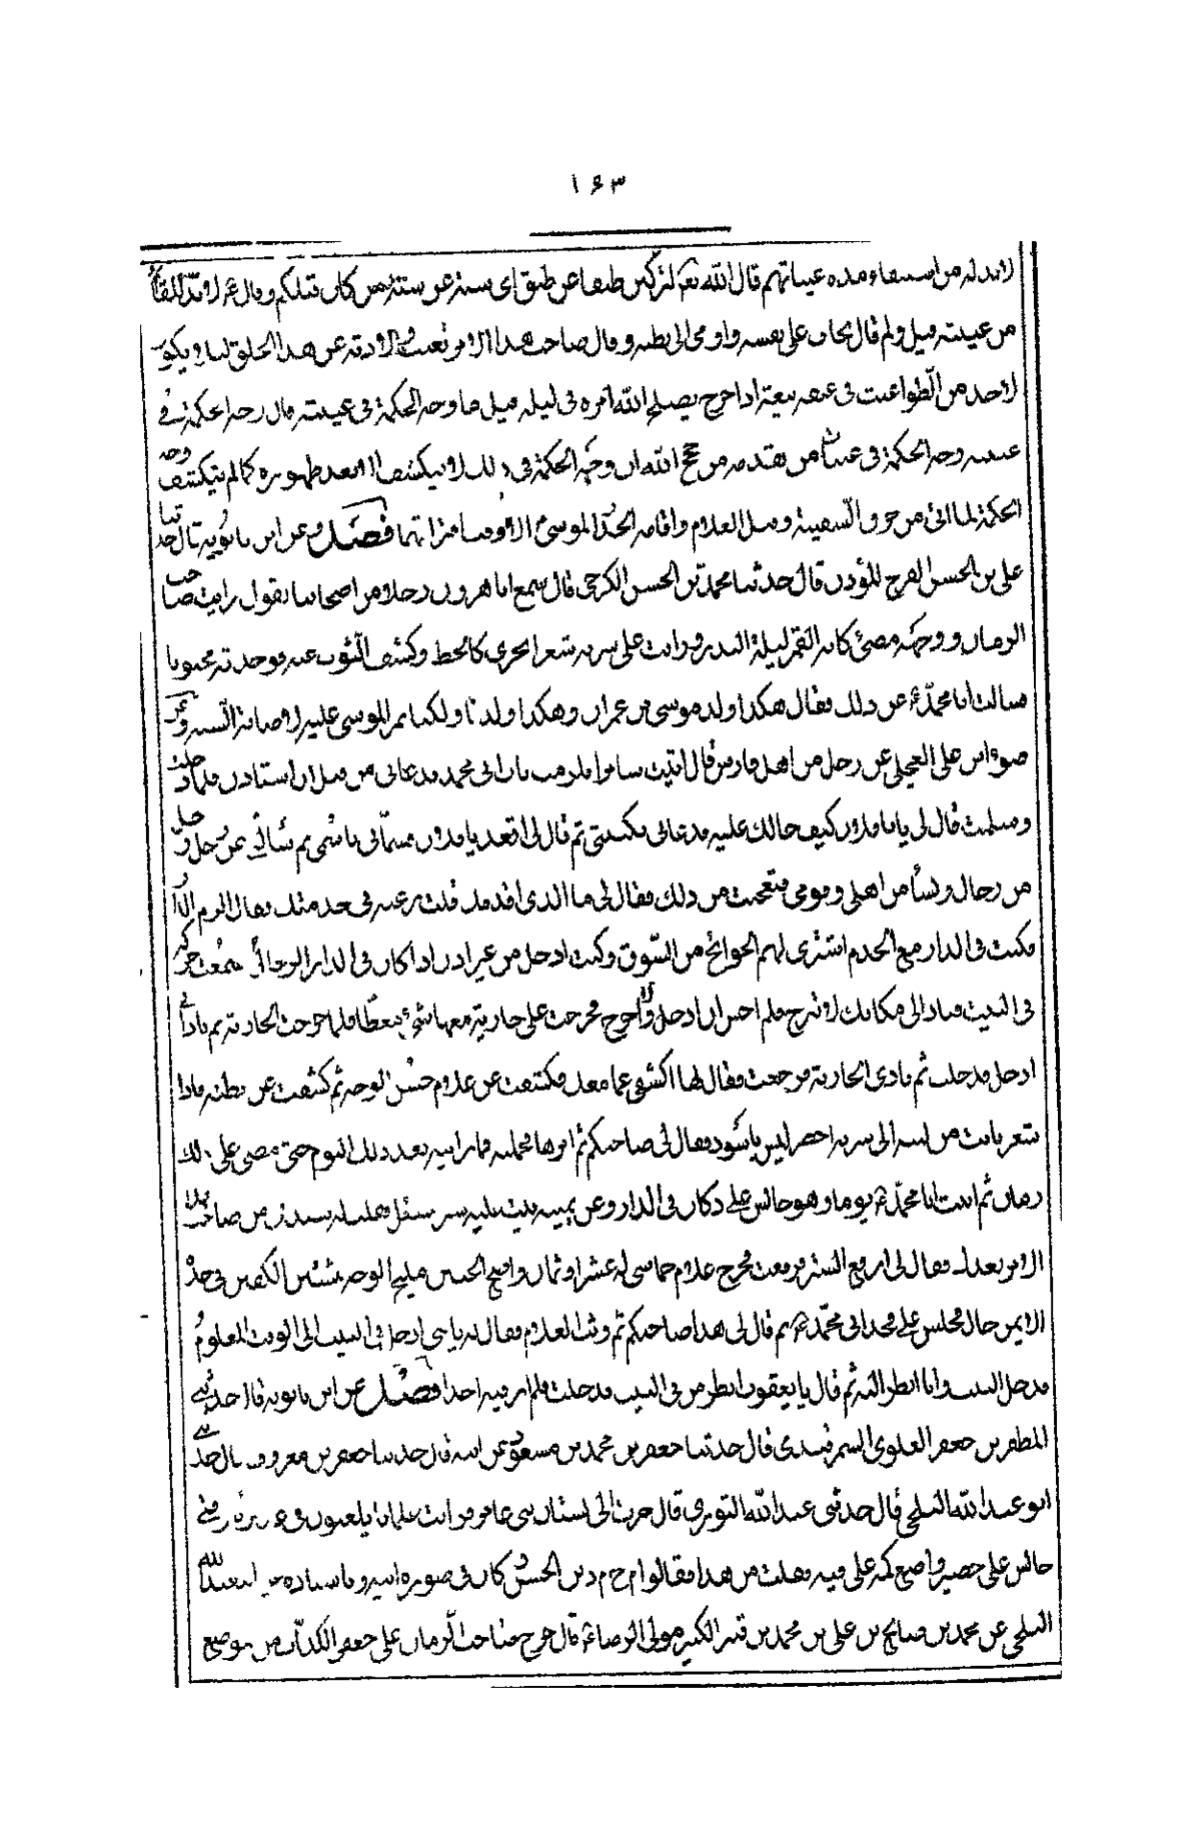 ١٦٣
لابد له من استيفاء مدة غيباتهم قال الله تع لتركبن طبقا عن طبق اى سنة عن سنة من كان قبلكم وقال ع لابد للغلام
من غيبته قيل ولم قال يخاف على نفسه واومى الى بطنه وقال صاحب هذا الامر تغيب ولادته عن هذا الخلق لئلا يكون
لاحد من الطواغيت فى عنقه بيعة اذا خرج يصلح الله امره فى ليلة قيل ما وجه الحكمة فى غيبته قال وجه الحكمة فى
غيبته وجه الحكمة فى غيبات من تقدمه من حجج الله ان وجه الحكمة فى ذلك لا ينكشف الا بعد ظهوره كما لم ينكشف وجه
الحكمة لما اتى من خرق السفينة وقتل الغلام واقامة الجدار لموسى الا وقت افتراقهما فصل وعن ابن بابويه قال حدثنا
على بن الحسن الفرج المؤذن قال حدثنا محمد بن الحسن الكرخى قال سمع ابا هرون رجلا من اصحابنا يقول رايت صاحب
الزمان ووجهه مضئ كانه القمر ليلة البدر ورايت على سرته شعر ايجرى كالخط وكشف الثوب عنه فوجدته مختونا
فسالت ابا محمد ع عن ذلك فقال هكذا ولد موسى بن عمران وهكذا ولدنا ولكنا نمر الموسى عليه لاصابة السنة وعن
ضوء بن على العجلى عن رجل من اهل فارس قال اتيت سامرا فلزمت باب ابى محمد فدعانى من قبل ان استاذن فلما دخلت
وسلمت قال لى يا با فلان كيف حالك عليه فدعانى بكنيتى ثم قال لى اقعد يا فلان فسمانى باسمى ثم سألنى عن رجل رجل
من رجال ونساء من اهلى وقومى فتعجبت من ذلك فقال لى ما الذى اقدمك قلت رغبة فى خدمتك فقال الزم الدار
فكنت فى الدار مع الخدم اشترى لهم الحوائج من السوق وكنت ادخل من غير اذن اذا كان فى الدار الرجال فسمعت حركة
فى البيت فنادانى مكانك لا تبرح فلم اجسر ان ادخل ولا اخرج فخرجت على جارية معها شئ مغطا فلما خرجت الجارية ثم نادانى
ادخل فدخلت ثم نادى الجارية فرجعت فقال لها اكشفى عما معك فكشفت عن غلام حسن الوجه ثم كشفت عن بطنه فاذا
شعر نابت من لبته الى سرته اخضر ليس باسود فقال لى صاحبكم ثم امرها فحملته فما رايته بعد ذلك اليوم حتى مضى على ذلك
زمان ثم اتيت ابا محمد ع يوما وهو جالس على دكان فى الدار وعن يمينه بيت عليه ستر مسبل وقلت له يا سيدى من صاحب هذا
الامر بعدك فقال لى ارفع الستر فرفعت فخرج غلام خماسى له عشر او ثمان واضح الجبين مليح الوجه شثن الكفين فى خده
الايمن خال فجلس على فخذ ابى محمد ع ثم قال لى هذا صاحبكم ثم وثب الغلام فقال له يا بنى ادخل فى البيت الى الوقت المعلوم
فدخل البيت وانا انظر اليه ثم قال يا يعقوب انظر من فى البيت فدخلت فلم ار فيه احدا فصل عن ابن بابويه قال حدثنى
المظفر بن جعفر العلوى السمرقندى قال حدثنا جعفر بن محمد بن مسعود عن ابيه قال حدثنا جعفر بن معروف قال حدثنى
ابو عبد الله البلخى قال حدثنى عبد الله التورى قال خرجت الى بستان بنى عامر فرايت غلمانا يلعبون فى غدير وفتى
جالس على حصير واضع كمه على فيه فقلت من هذا فقالوا م ح م د بن الحسن كان فى صورة ابيه وباسناده عن ابى عبد الله
البلخى عن محمد بن صالح بن على بن محمد بن قنبر الكبير مولى الرضا ع قال خرج صاحب الزمان على جعفر الكذاب من موضع